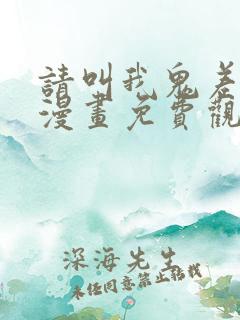 請叫我鬼差
漫畫免費觀
深海先生
未经同意禁止转载